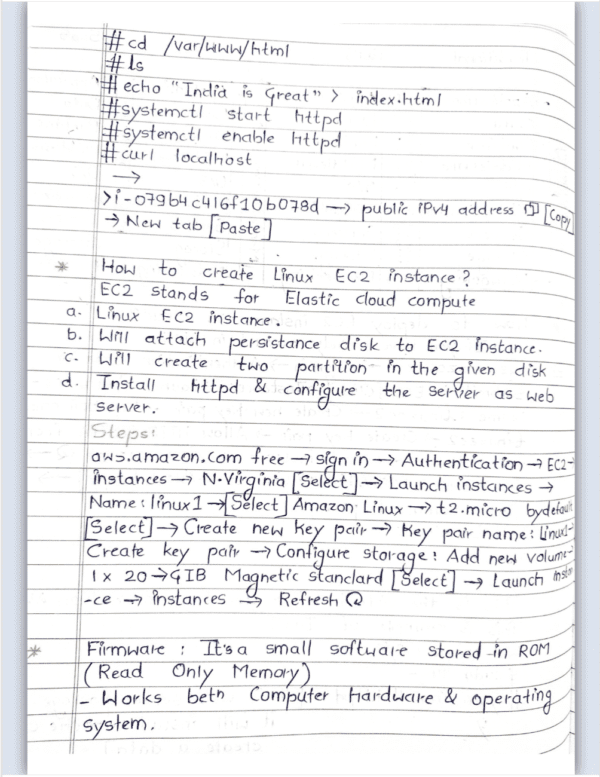 # cd /var/www/html
# ls
# echo "India is Great" > index.html
# systemctl start httpd
# systemctl enable httpd
# curl localhost
→
> i-079b4c416f10b078d → public iPv4 address [Copy]
→ New tab [Paste]
* How to create Linux EC2 instance?
EC2 stands for Elastic cloud compute
a. Linux EC2 instance.
b. Will attach persistance disk to EC2 instance.
c. Will create two partition in the given disk
d. Install httpd & configure the server as web
server.
Steps:
aws.amazon.com free → sign in → Authentication → EC2 →
instances → N.Virginia [Select] → Launch instances →
Name: linux1 → [Select] Amazon Linux → t2.micro bydefault
[Select] → Create new key pair → Key pair name: Linux1 -
Create key pair → Configure storage: Add new volume -
1 x 20 → GIB Magnetic standard [Select] → Launch Instan
-ce → instances → Refresh
* Firmware : It's a small software stored in ROM
(Read Only Memory)
- Works betn Computer Hardware & operating
system.